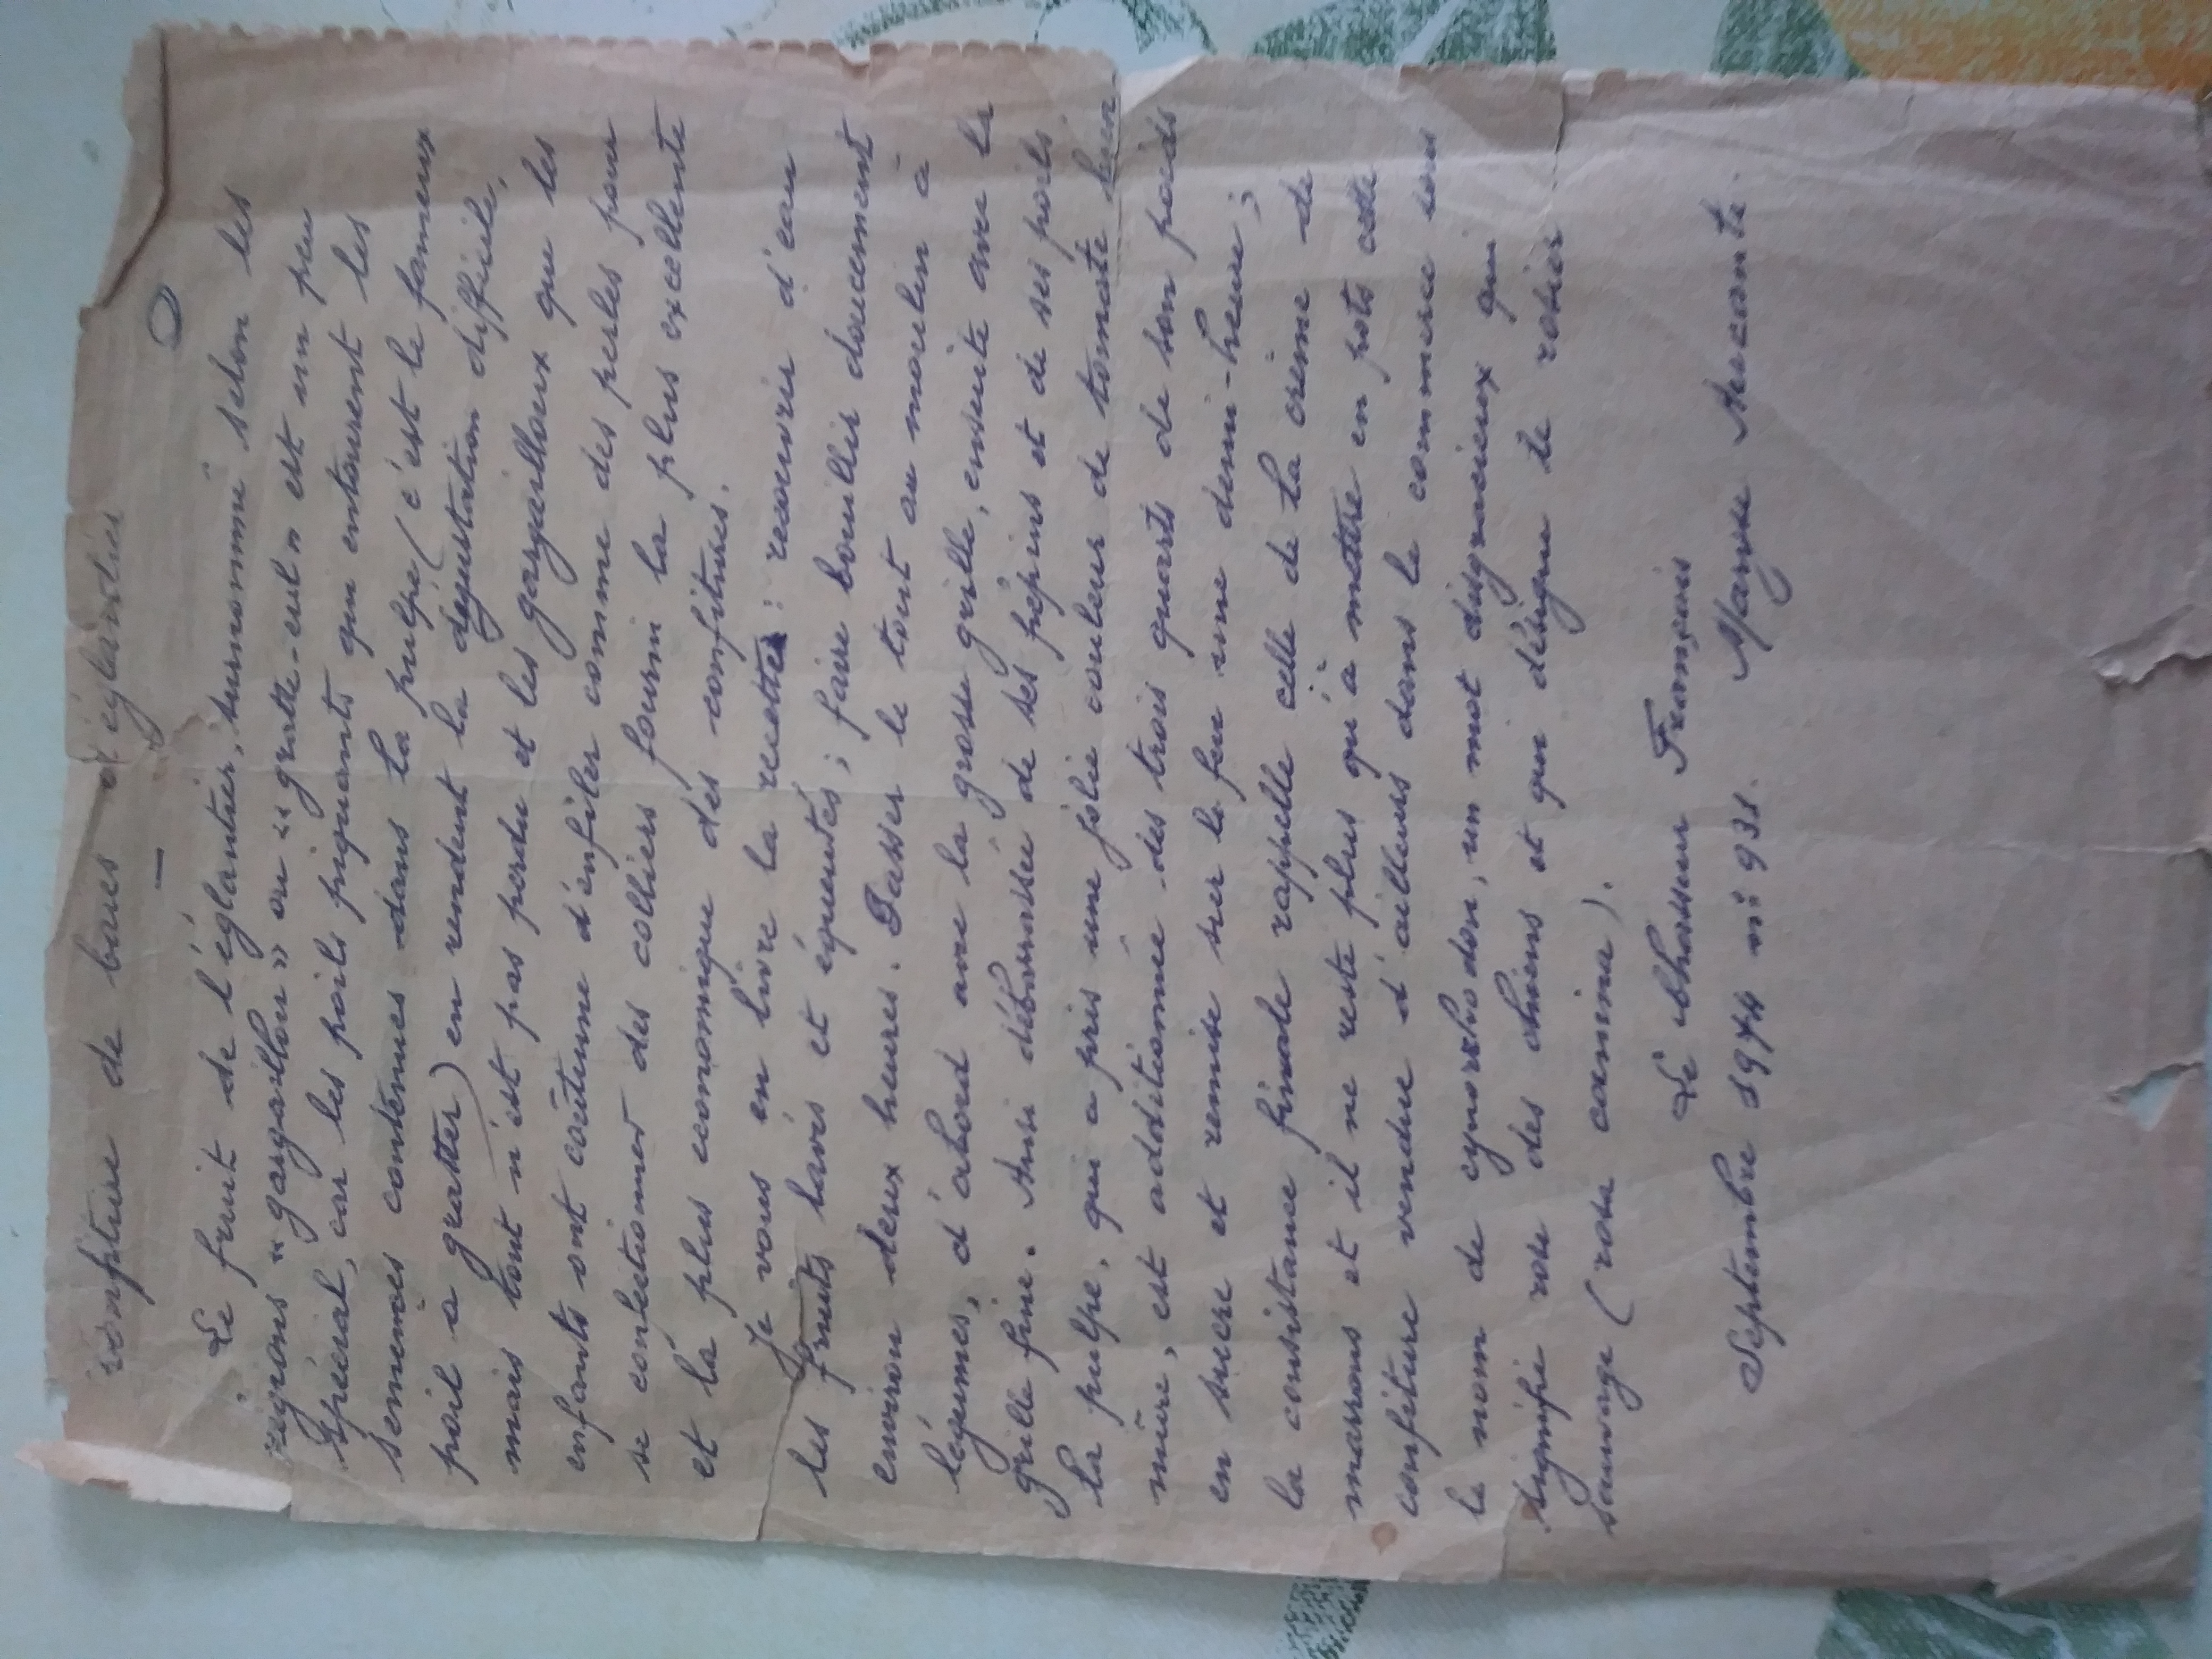 Confiture de baies d'églantier
Le fruit de l'églantier, surnommé selon les
régions "gargaillou" ou "gratte-cul" est un peu
spécial, car les poils piquants qui entourent les
semences contenues dans la pulpe (c'est le fameux
poil a gratter) en rendent la dégustation difficile,
mais tout n'est pas perdu et les gargailloux que les
enfants ont coutume d'enfiler comme des perles pour
se confectionner des colliers fourni la plus excellente
et la plus economique des confitures.
Je vous en livre la recette : recouvrir d'eau
les fruits lavés et équeutés ; faire bouillir doucement
environ deux heures. Passer le tout au moulin à
légumes, d'abord avec la grosse grille, ensuite avec la
grille fine. Ainsi débarrassée de ses pépins et de ses poils
la pulpe, qui a pris une jolie couleur de tomate bien
mûre, est additionnée des trois quarts de son poids
en sucre et remise sur le feu une demi-heure ;
la consistance finale rappelle celle de la crème de
marrons et il ne reste plus qu'à mettre en pots cette
confiture vendue d'ailleurs dans le commerce sous
le nom de cynorhodon, un mot disgracieux qui
signifie rose des chiens et qui désigne le rosier
sauvage (rosa canina).
Le Chasseur Français
Septembre 1974 n° 931. Maryse